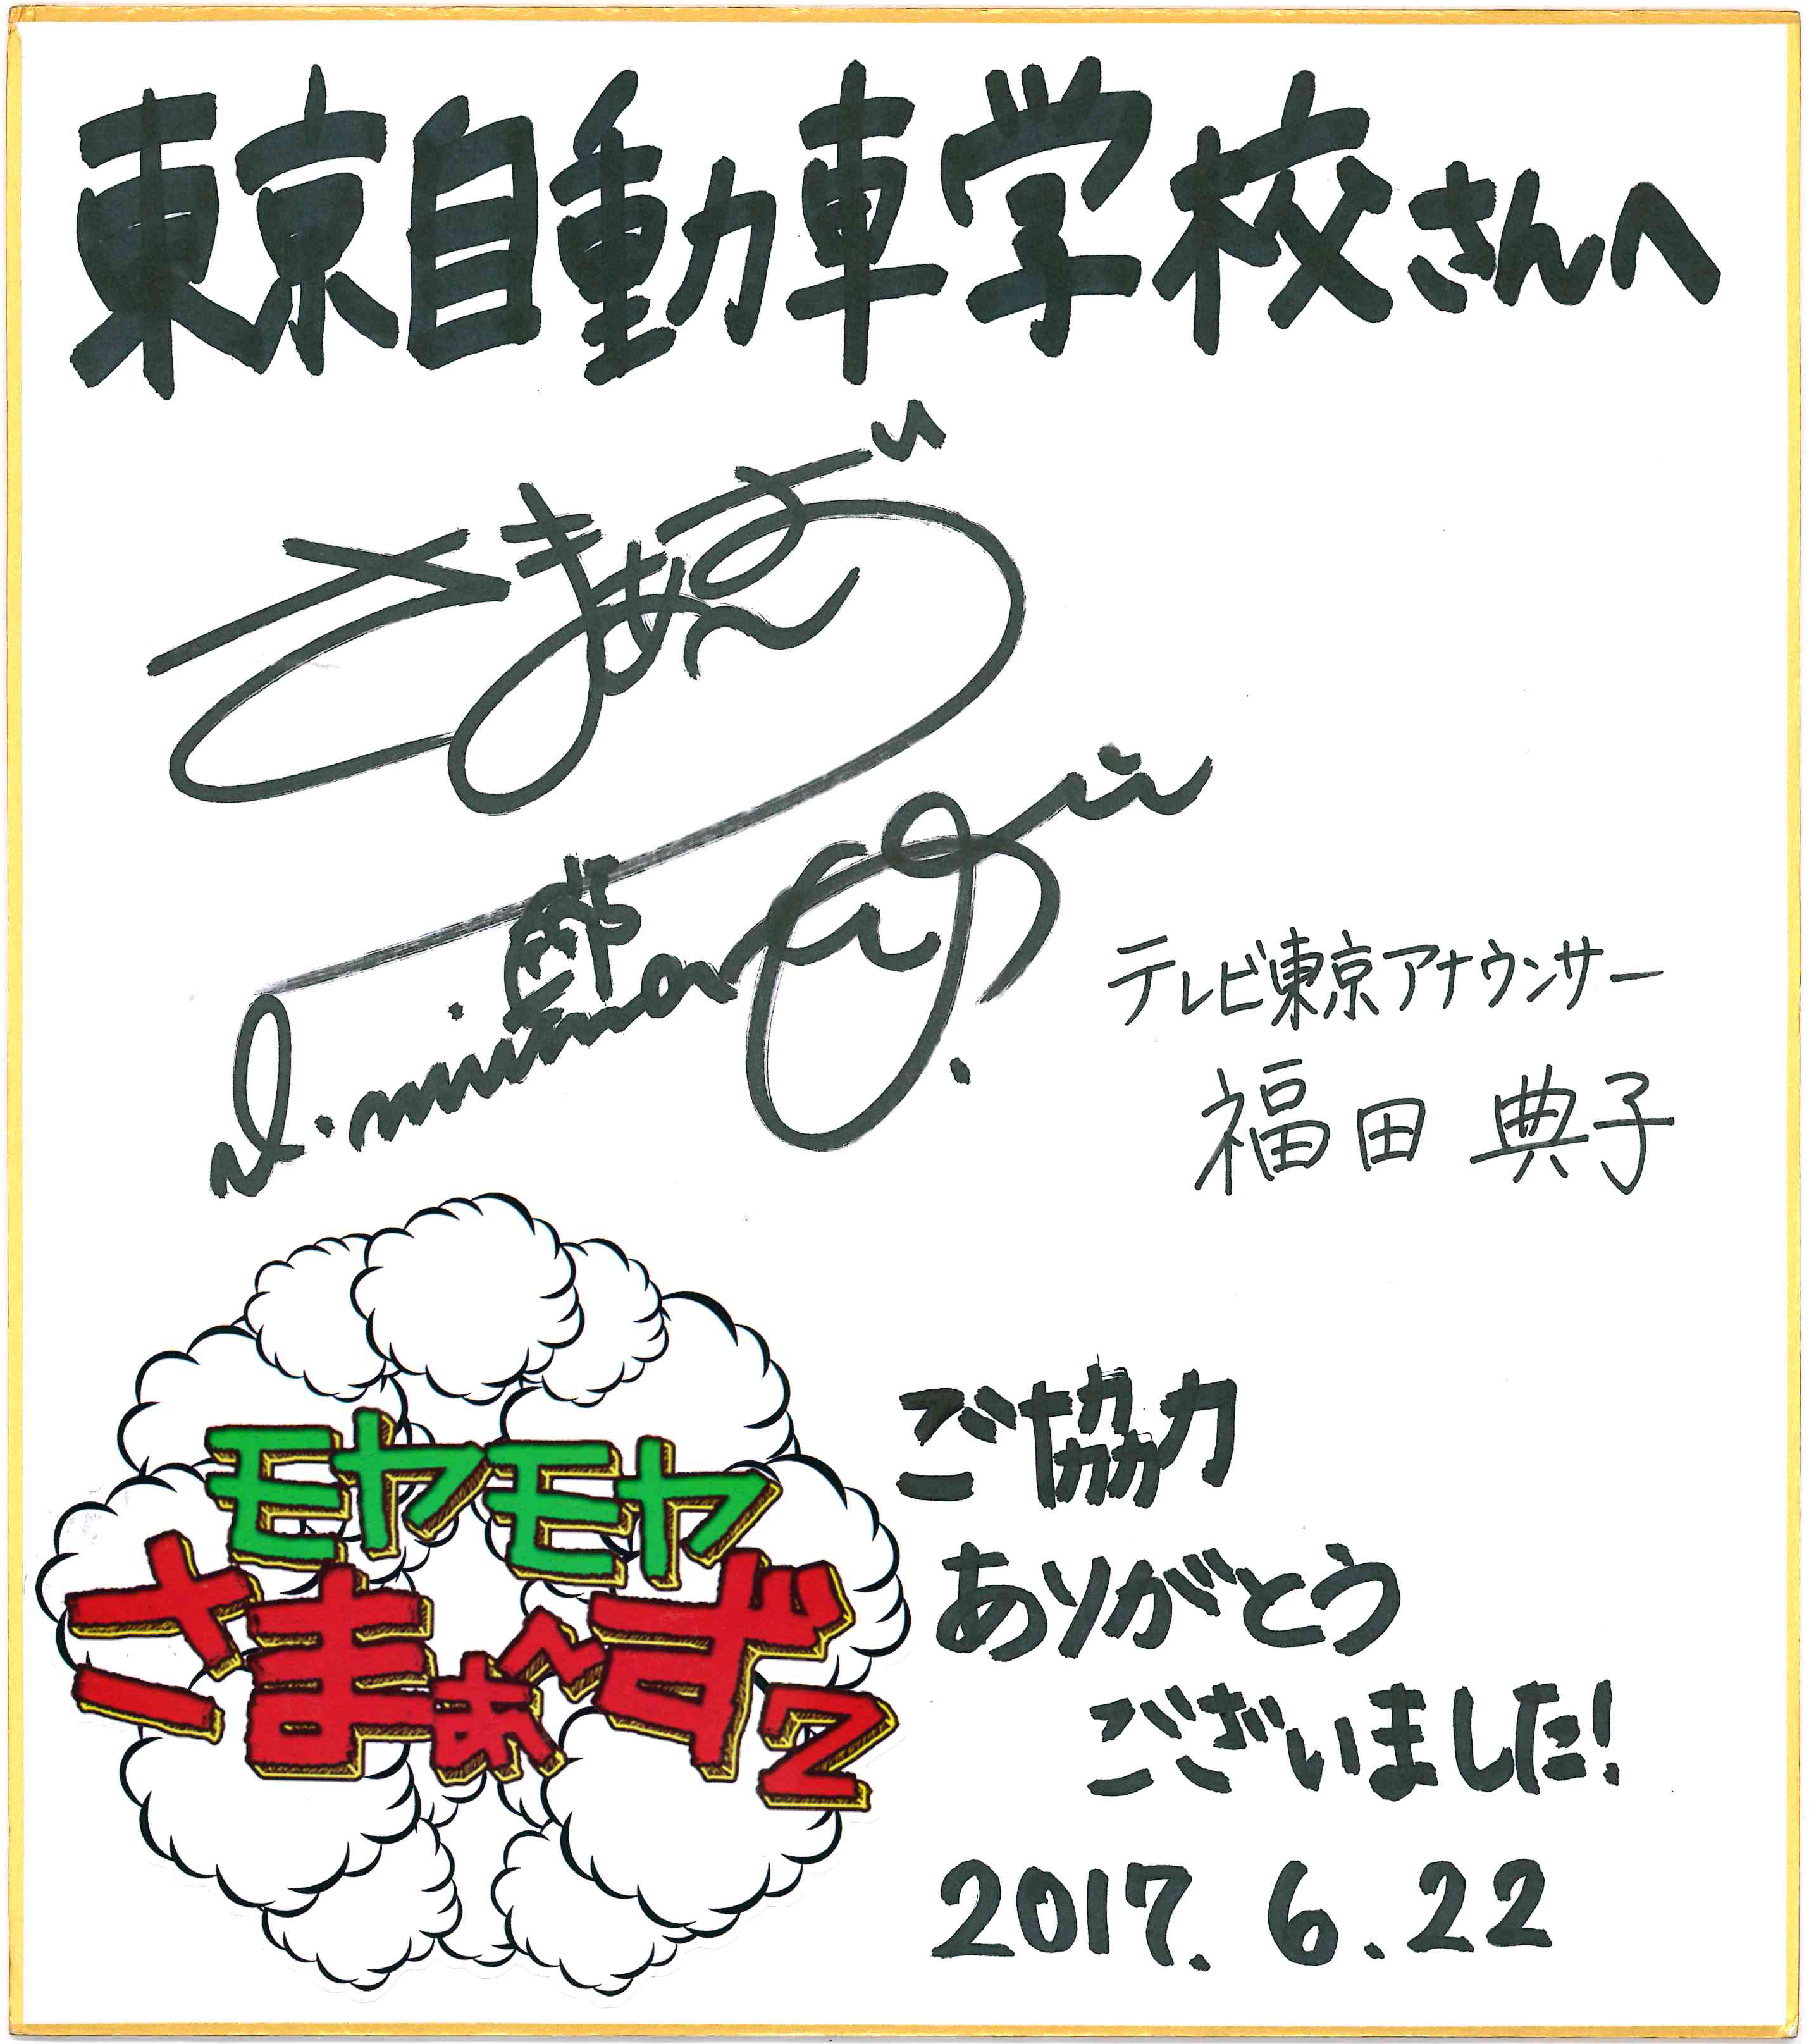 東京自動車学校さんへ
さまぁ~ず
テレビ東京アナウンサー
福田 典子
モヤモヤ
さまぁ~ず2
ご協力
ありがとう
ございました!
2017. 6. 22